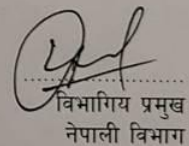 विभागिय प्रमुख
नेपाली विभाग